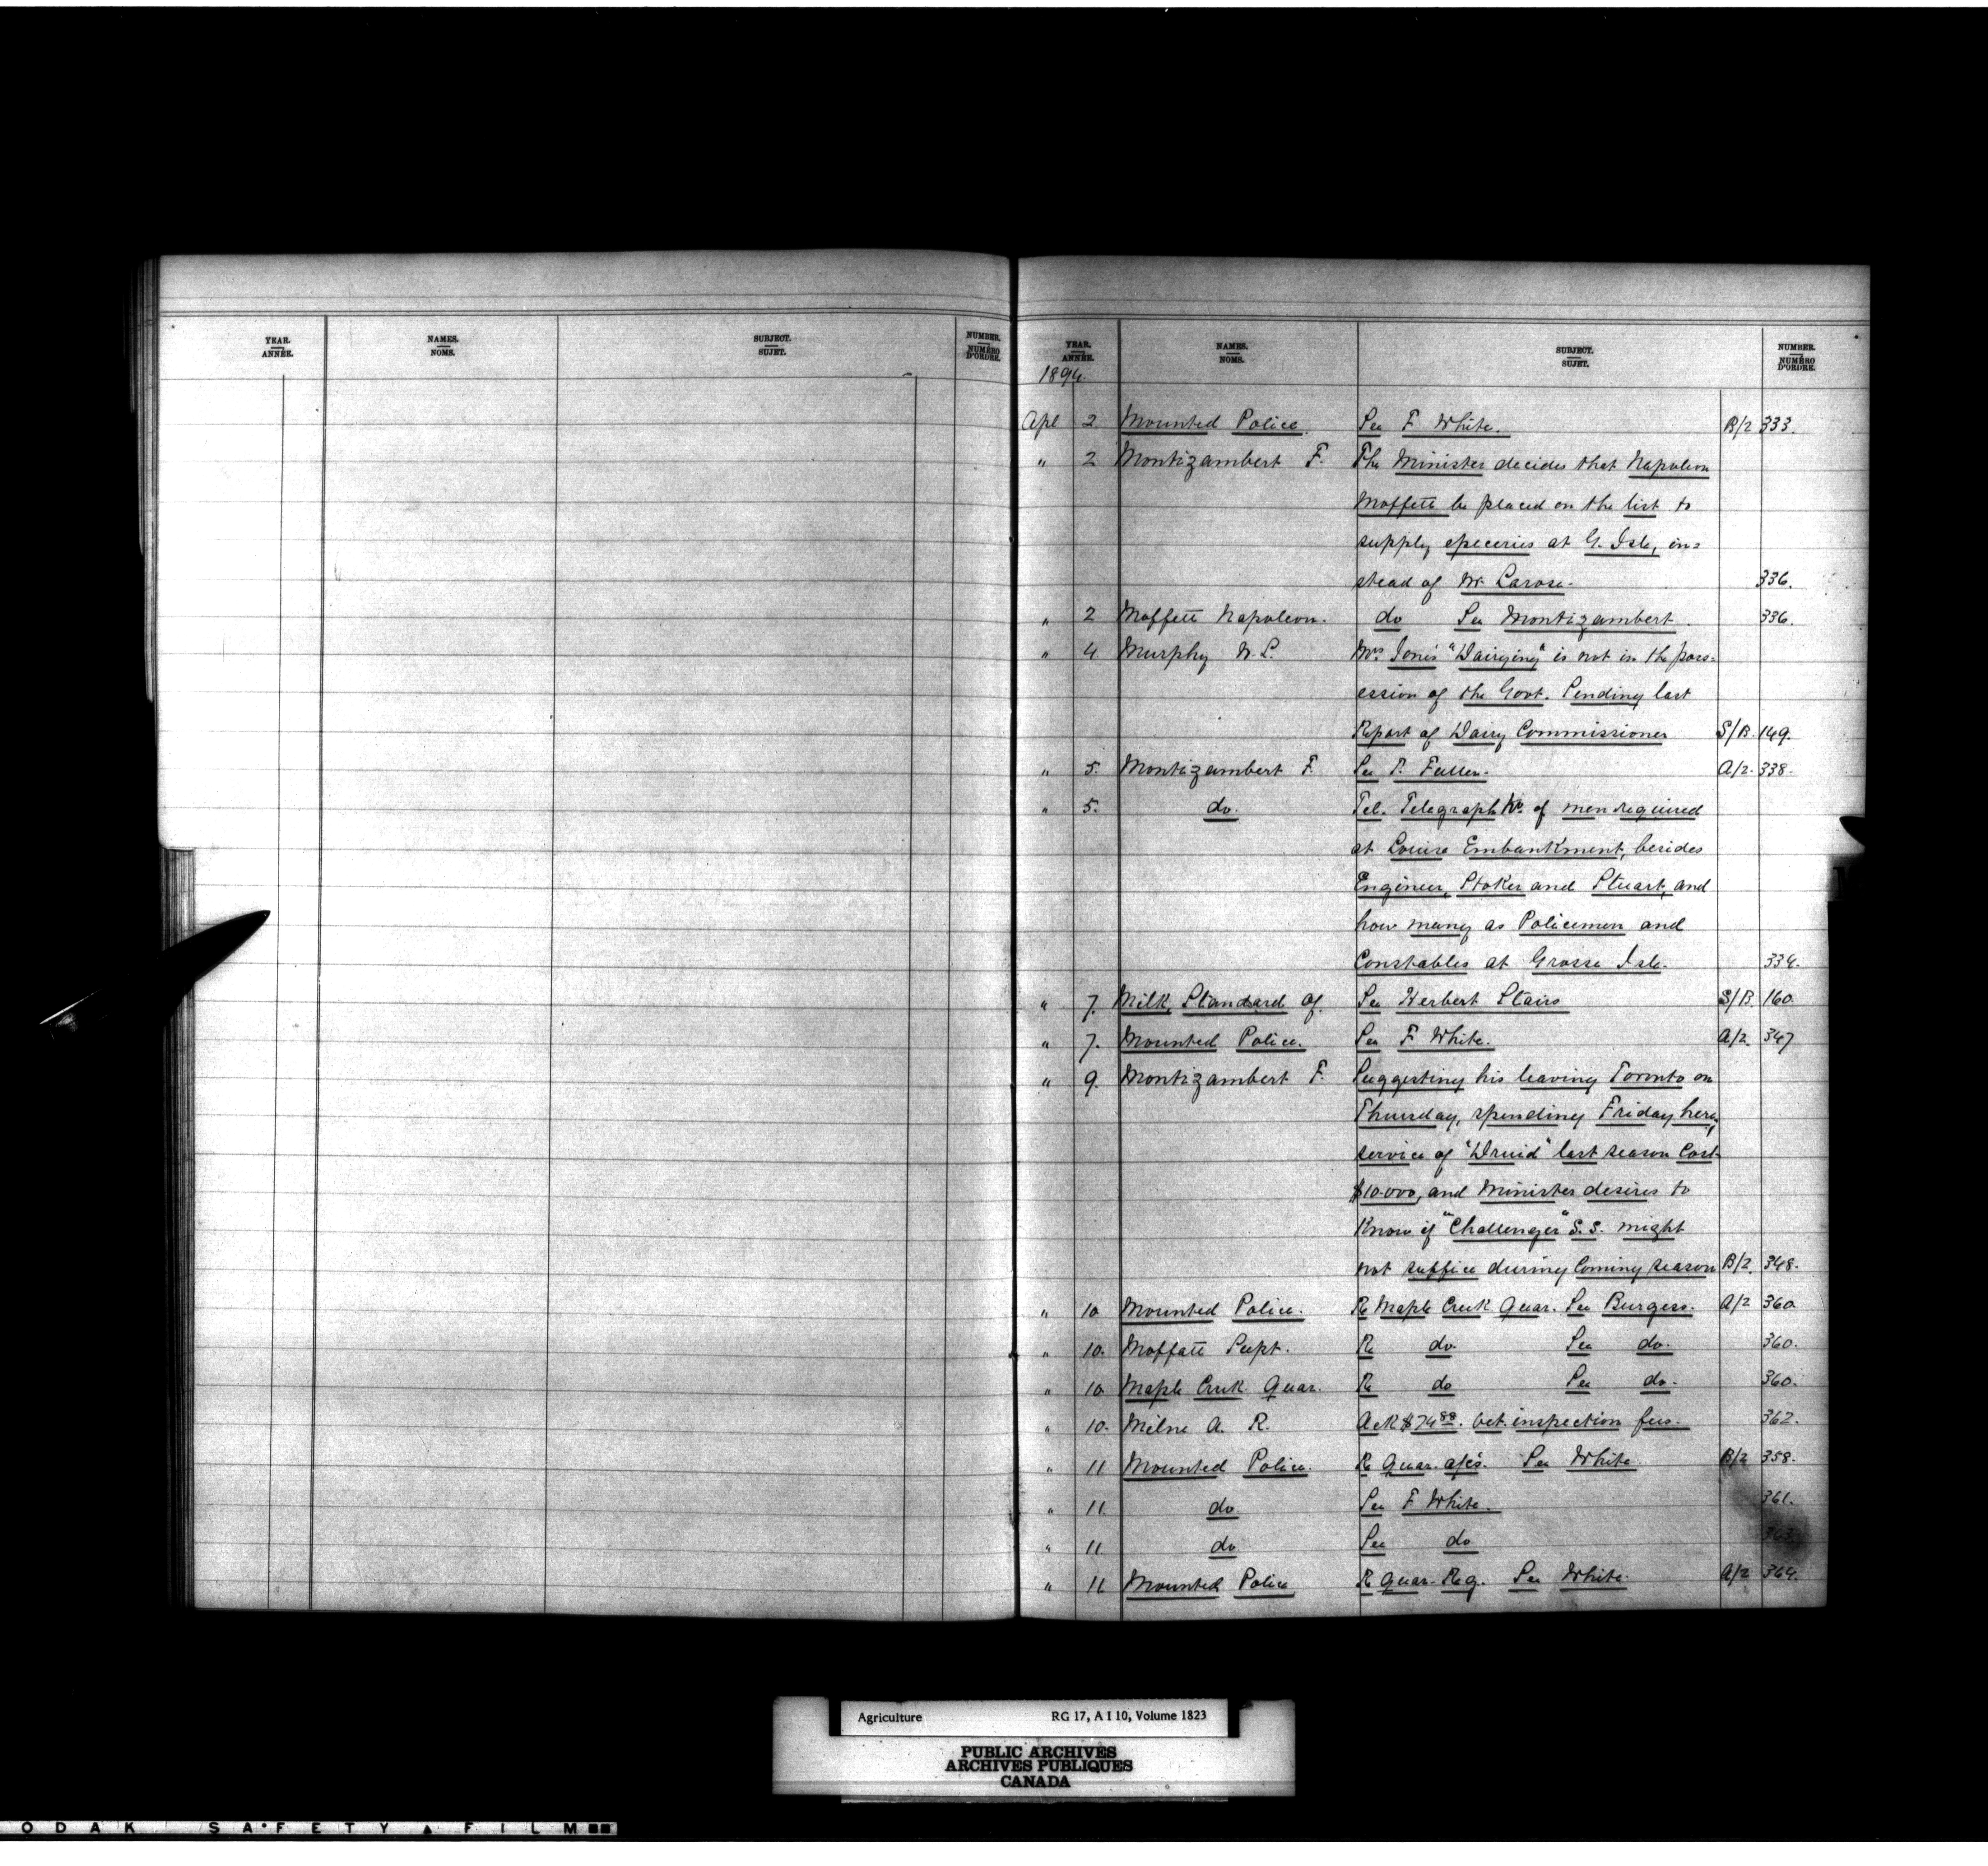 YEAR. NAMES. SUBJECT. NUMBER.
ANNÉE. NOMS. SUJET. NUMÉRO D'ORDRE.
YEAR. NAMES. SUBJECT. NUMBER.
ANNÉE. NOMS. SUJET. NUMÉRO D'ORDRE.
1894.
Apl 2 Mounted Police. See F White. B/2 333.
" 2 Montizambert F. The Minister decides that Napoleon
Moffett be placed on the list to
supply epeceries at G. Isle, in=
stead of Mr Larose. 336.
" 2 Moffett Napoleon. do See Montizambert. 336.
" 4 Murphy W. L. Mrs Jone's "Dairying" is not in the poss=
ession of the Govt. Sending last
Report of Dairy Commissioner S/B. 149.
" 5. Montizambert F. See T. Fuller. A/2. 338.
" 5. do. Tel. Telegraph No. of men required
at Louise Embankment, besides
Engineer, Stoker and Stuart, and
how many as Policemen and
Constables at Grosse Isle. 334.
" 7. Milk, Standard of. See Herbert Stairs S/B. 160.
" 7. Mounted Police. See F White. A/2. 347
" 9. Montizambert F. Suggesting his leaving Toronto on
Thursday, spending Friday here,
service of "Druid" last season Cost
$10.000, and Minister desires to
Know if "Challenger" S.S. might
not suffice during Coming season B/2. 348.
" 10 Mounted Police. Re Maple Creek Quar. See Burgess. A/2 360.
" 10. Moffatt Supt. Re do. See do. 360.
" 10 Maple Creek Quar. Re do See do. 360.
" 10. Milne A. R. Ack $74 88. vet. inspection fees. 362.
" 11 Mounted Police. Re Quar. a/cs. See White. B/2 358.
" 11 do See F White. 361.
" 11 do See do 363.
" 11 Mounted Police Re Quar. Reg. See White. A/2 364.
Agriculture RG 17, A I 10, Volume 1823
PUBLIC ARCHIVES
ARCHIVES PUBLIQUES
CANADA
ODAK SAFETY FILM